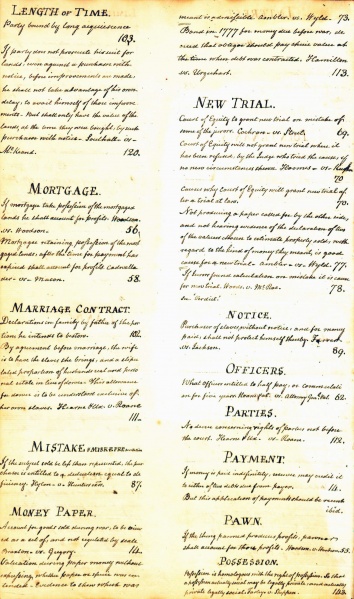 LENGTH OF TIME.
Party bound by long acquiescence
103.
If party does not prosecute his suit for
lands, won against a purchaser with
notice, before improvements are made
he shall not take advantage of his own
delay, to avail himself of those improve
ments. But shall only have the value of the
lands, at the time they were bought, by such
purchaser with notice.
McKeand. 120.
MORTGAGE.
If mortgagee take possession of the mortgaged
lands he shall account for profits. Woodson
vs. Woodson. 56.
Mortgagee retaining possession of the mort
gaged lands, after the time for payment has
expired shall account for profits
vs. Macon. 58.
MARRIAGE CONTRACT.
Declarations in family by father of the por
tion he intends to bestow. 102.
By agreement before marriage, the wife
is to have the slaves she brings, and a stipu
lated proportion of husbands real and perso
nal estate in lieu of dower. This allowance
for dower is to be understood exclusive of
her own slaves. vs. Roane
111.
MISTAKE
If the subject sold be less than represented, the pur
chaser is entitled to a deduction equal to de
ficiency. vs. 87.
MONEY PAPER.
Account for goods sold during war, to be allow
ed as a set of, and not regulated by scale
Braxton vs. Gregory. 14.
Valuation during paper money without
expressing, whether paper or specie was in
tended. Evidence to show which was
meant is admissible. Ambler vs. Wyld. 73.
Bond in 1777 for money due before war, de
creed that obligee should pay the value at
the time when debt was contracted. Hamilton
vs. Urquhart. 113.
NEW TRIAL.
Court of Equity to grant new trial on mistake of
some of the jurors. Cochran vs. Street. 69.
Court of Equity will not grant new trial when it
has been refused, by the Judge who tried the cause, if
no new circumstances shown.
70
Causes why Court of Equity will grant new trial of
a trial at law. 70.
Not producing a paper called for by the other side,
and not hearing evidence of the declaration of two
of the valuers chosen to estimate property sold, with
regard to the kind of money they meant, is good
cause for a new trial. Ambler vs. Wyld. 77.
If Jurors found calculation on mistake it is cause
for new trial. vs. McRae. 78.
NOTICE.
Purchaser of slaves without notice, and for money
paid, shall not protect himself thereby.
vs. Jackson. 89.
OFFICERS.
What officers entitled to half pay, or commutati
on for five years vs. Attorney Genl. 62.
PARTIES.
No decree concerning rights of parties not before
the court. vs. Roane. 112.
PAYMENT.
If money is paid indefinitely, receiver may credit it
to either of two debts due from payor. 14.
But this application of payment should be recent
ibid.
PAWN.
If the thing pawned produces profits, pawnee
shall account for those profits. Woodson vs. Woodson. 55.
POSSESSION.
Possession is homologous with the right of possession. So that